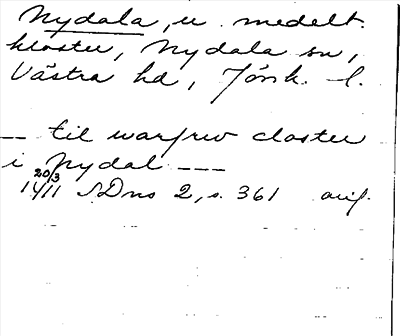 Nydala, u. medelt.
kloster, Nydala sn,
Västra hd, Jönk. l.
-- til warfrw closter
i Nydal ---
20/3 1411 SDns 2, s. 361 avig.